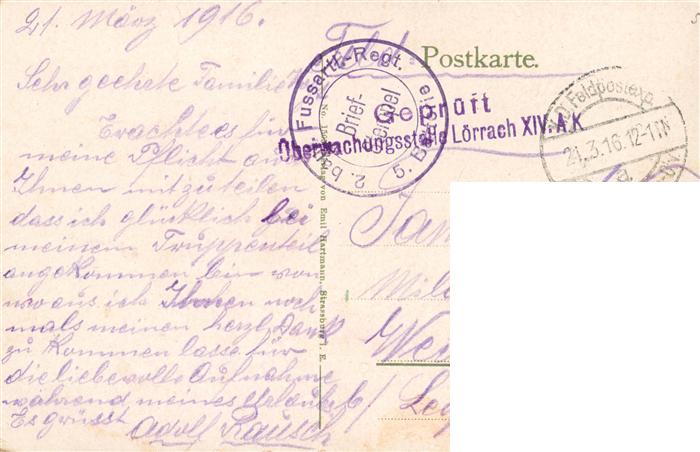 21. März 1916.
Sehr geehrte Familie
Erachte es für
meine Pflicht an
Ihnen mitzuteilen
dass ich glücklich bei
meinem Truppenteil
angekommen bin von
wo aus ich Ihnen noch
mals meinen herzl. Dank
zu kommen lasse für
die liebevolle Aufnahme
während meines Urlaubs
Es grüsst Adolf Rausch
Feld-Postkarte.
Fussartl.-Regt.
Brief-
stempel
5. Batterie
2. bay.
Geprüft
Oberwachungsstelle Lörrach XIV. A.K
Feldpostexp.
21.3.16.12-1 N
Verlag von Emil Hartmann, Strassburg i. E.
Fam
b/